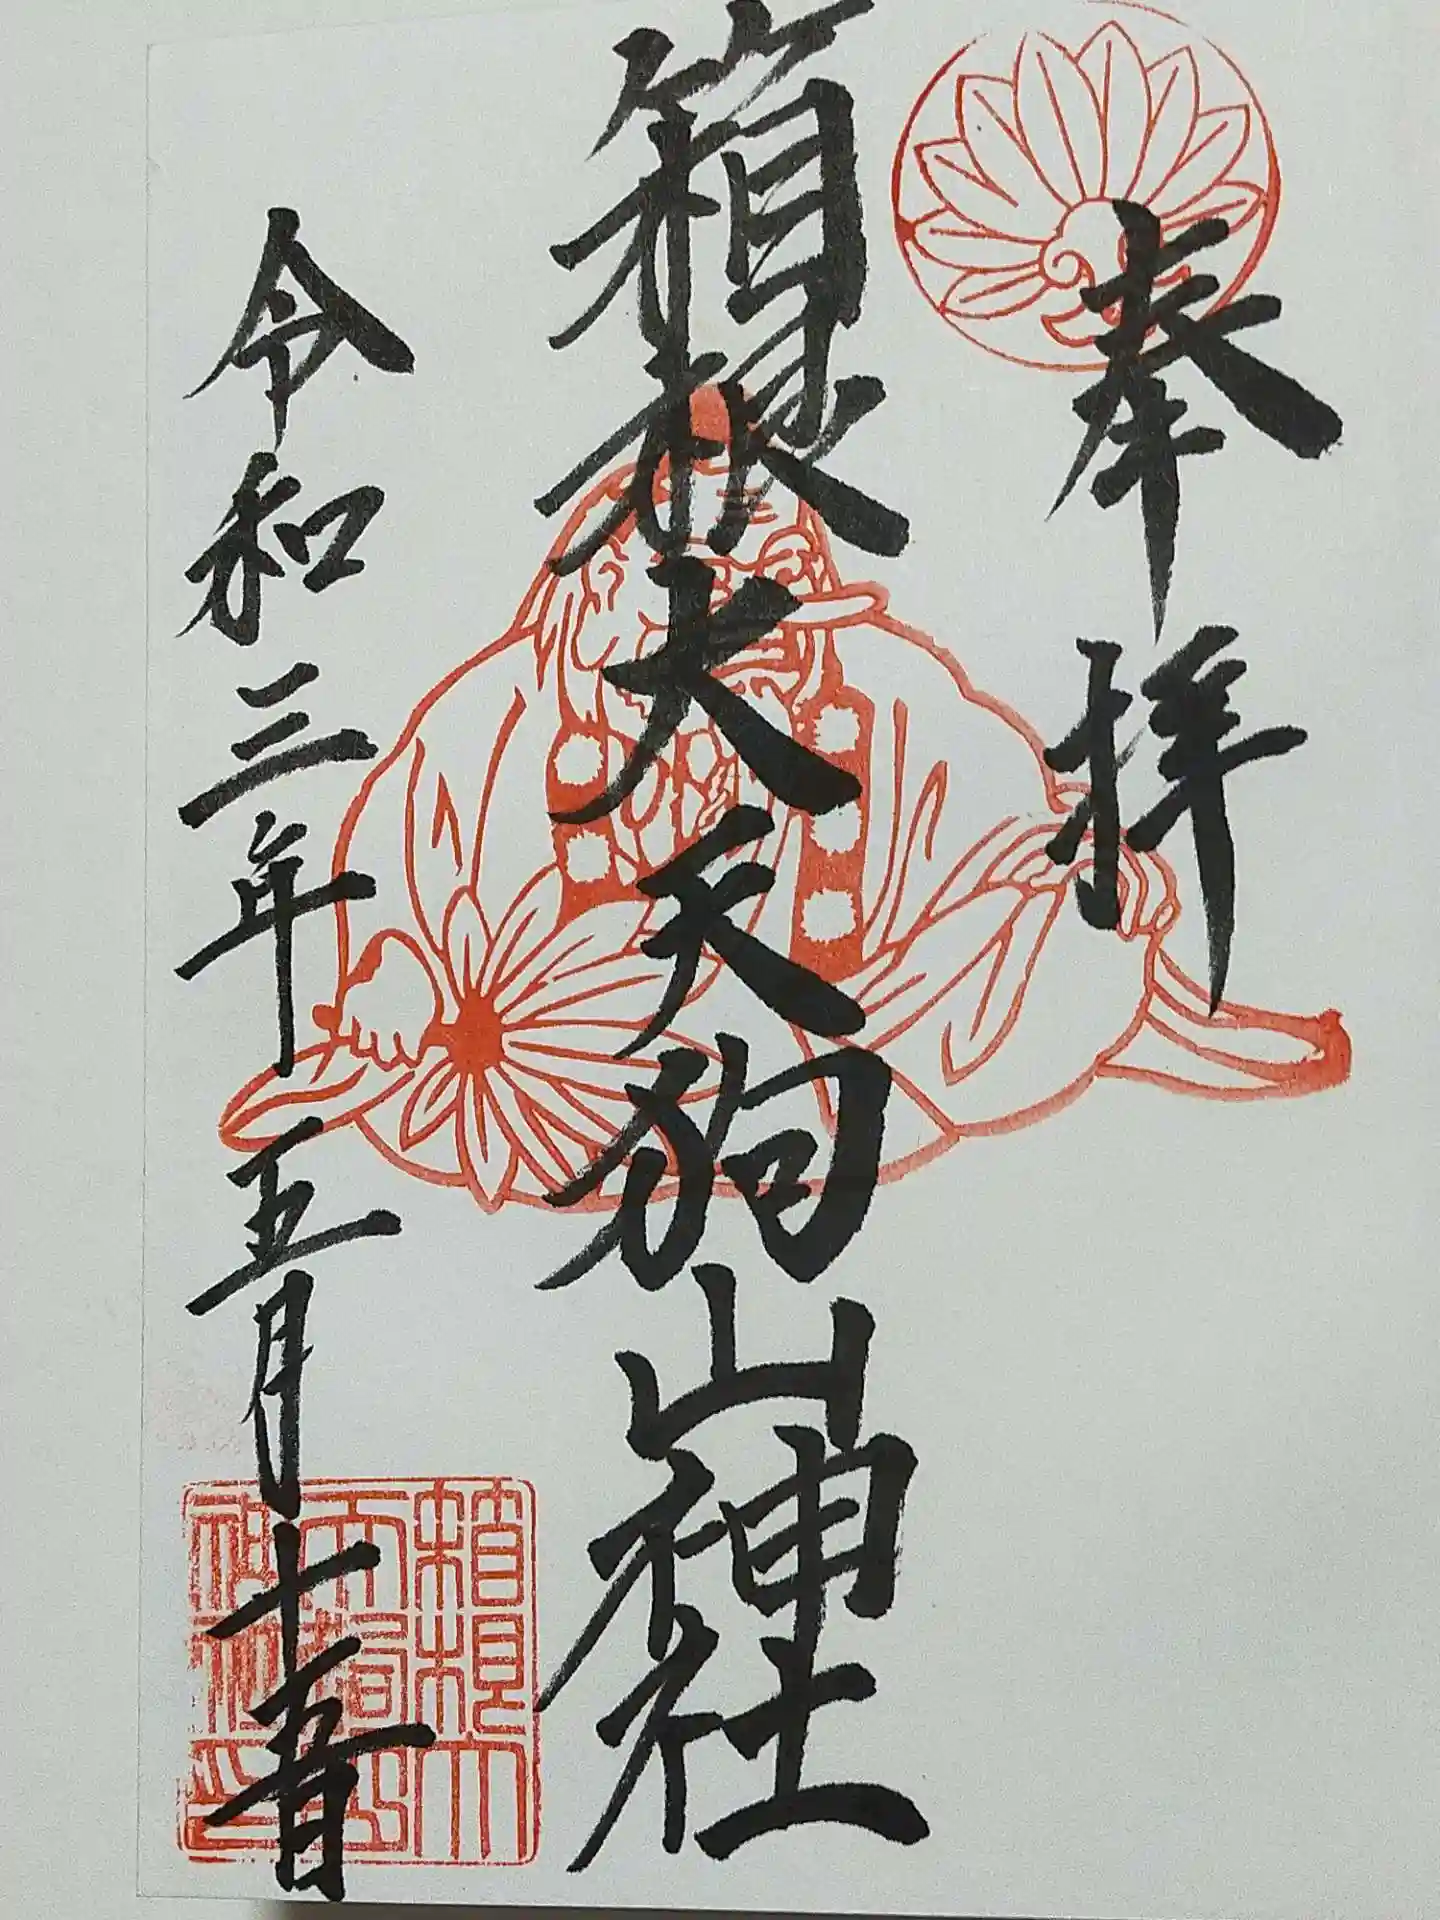 奉拝
箱根大天狗山神社
令和三年五月十五日
箱根大
天狗山
神社印